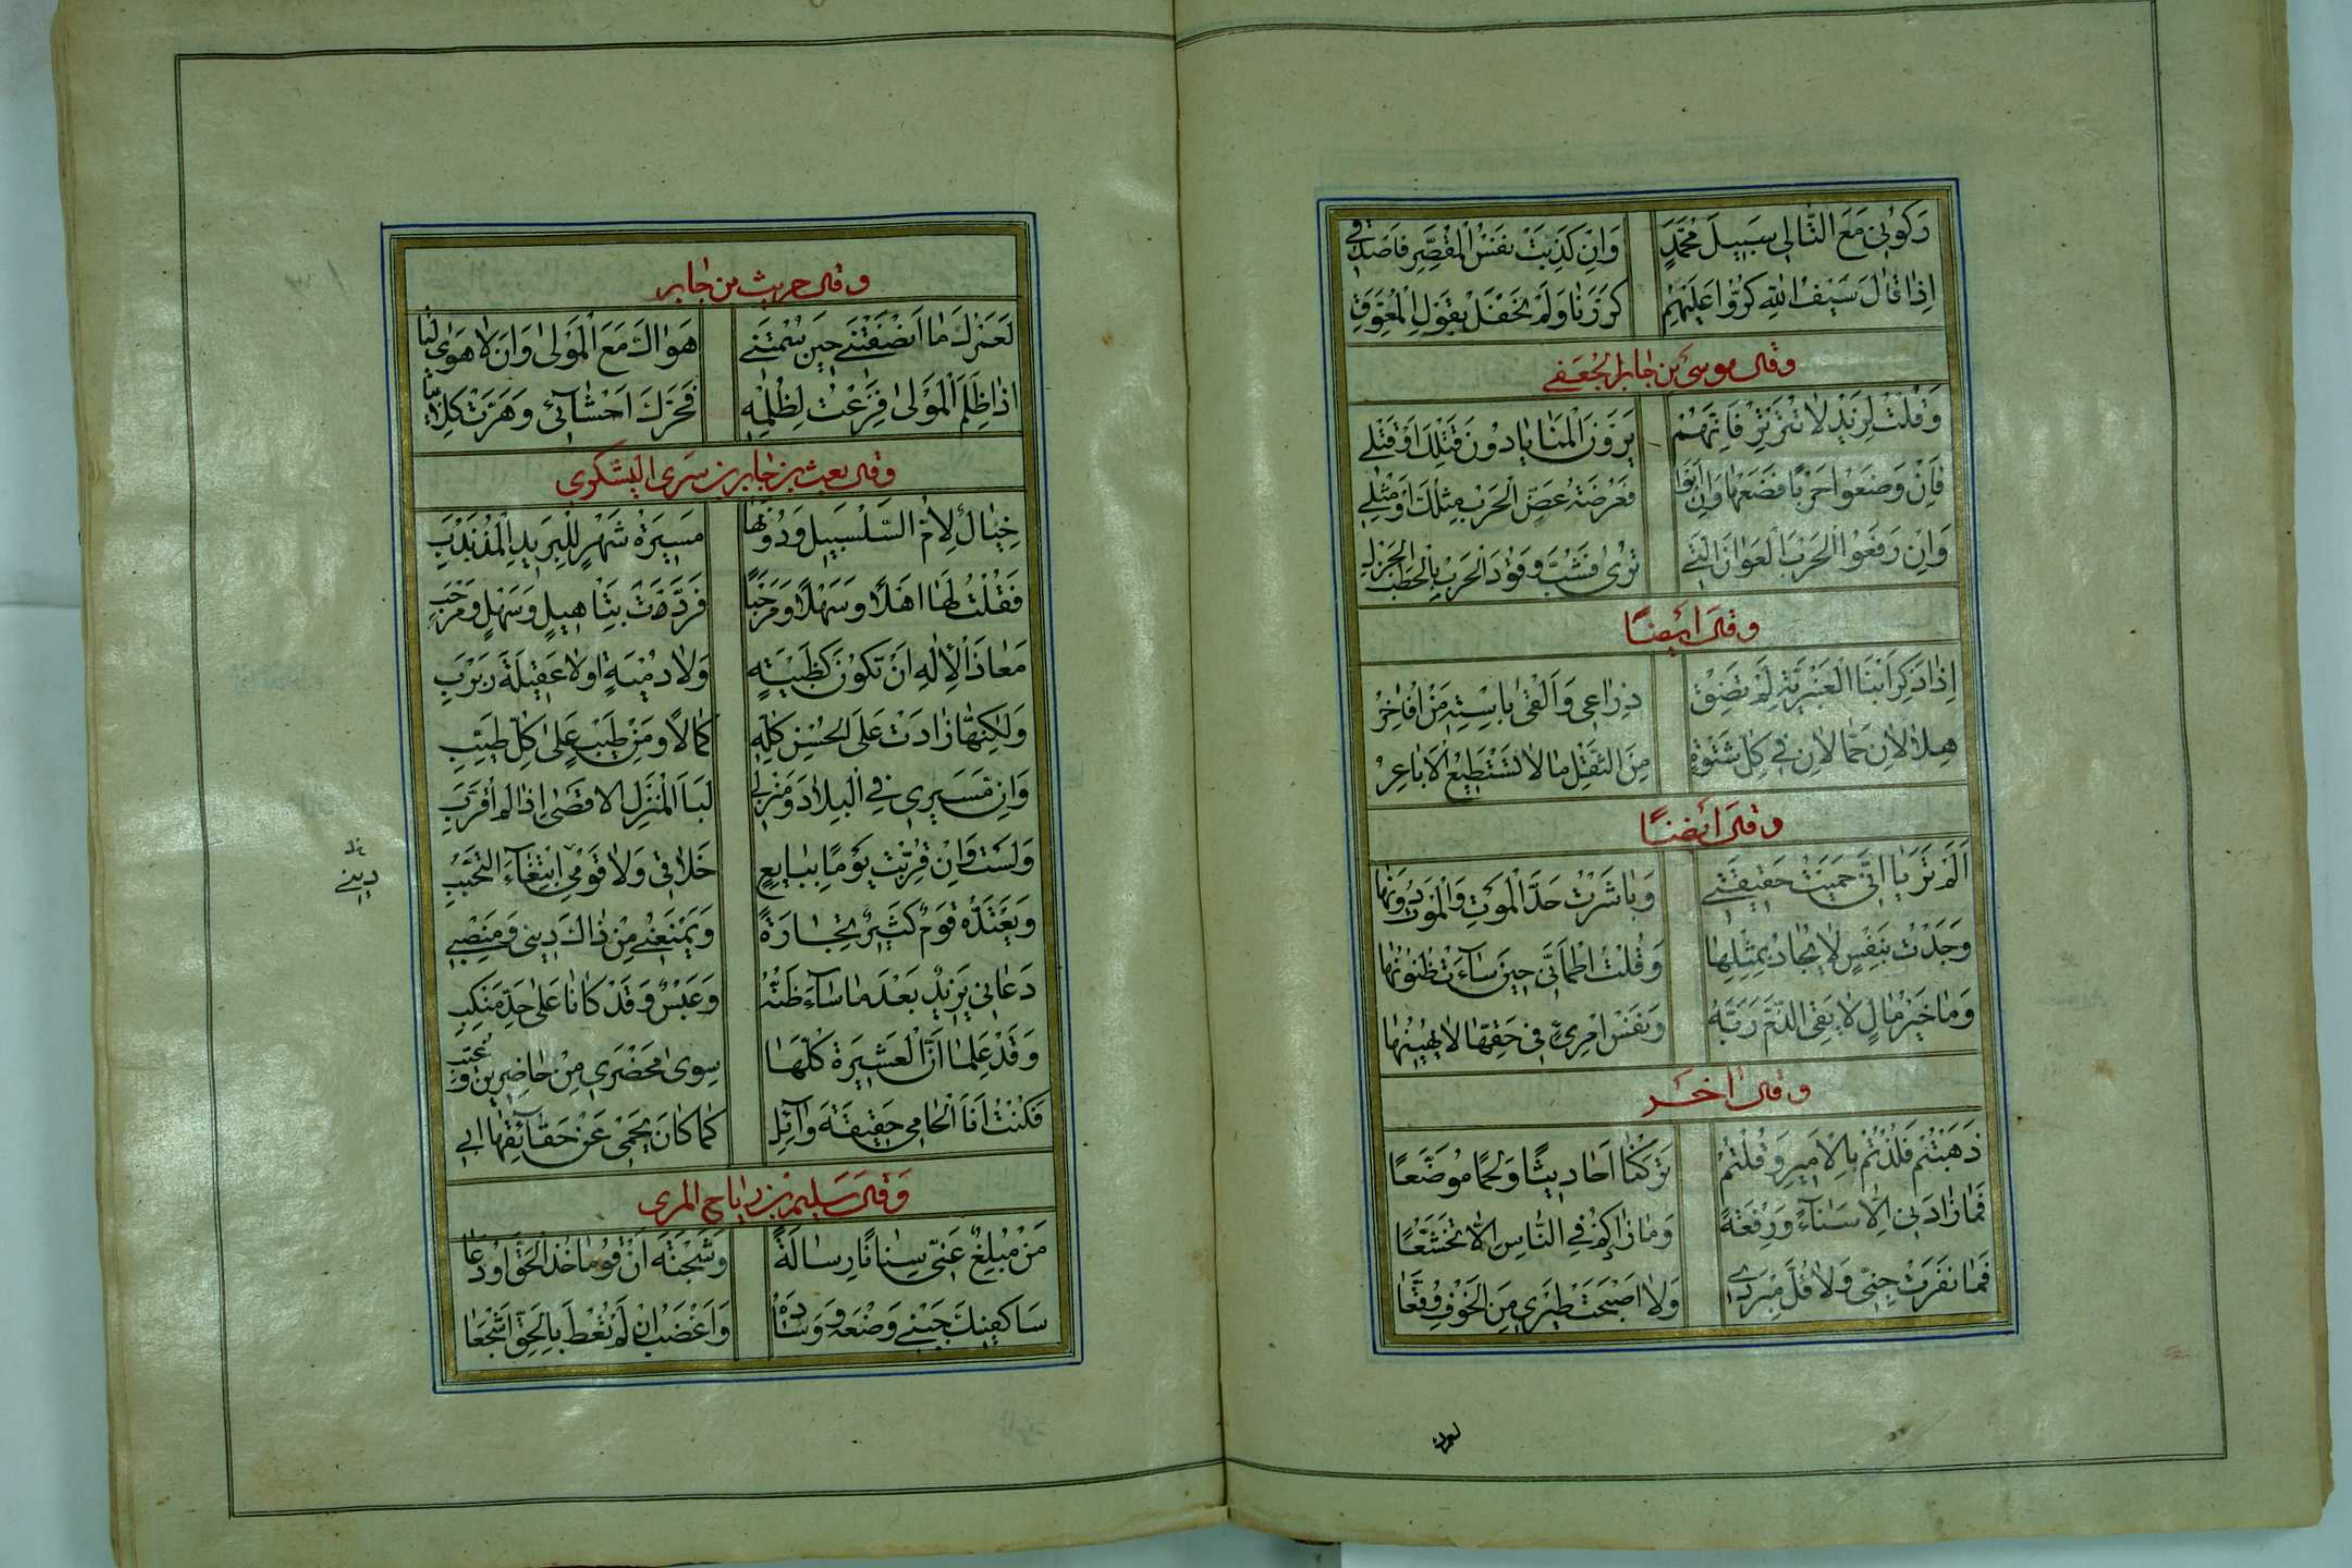 رَكُوبِي مَعَ التَّالِي سَبِيلَ مُحَمَّدٍ وَاِنْ كَذَبَتْ نَفْسُ الْمُقَصِّرِ فَاصْدُقِي
اِذَا قَالَ سَيْفُ اللهِ كَرُّوا عَلَيْهِمِ كَرَرْنَا وَلَمْ نَحْفَلْ بِقَوْلِ الْمُعَوِّقِ
وقال موسى بن جابر الجعفي
وَقُلْتُ لِزَيْدٍ لَا تُتَرْتِرْ فَاِنَّهُمْ يَرَوْنَ الْمَنَايَا دُونَ قَتْلِكَ اَوْ قَتْلِي
فَاِنْ وَضَعُوا حَرْبًا فَضَعْهَا وَاِنْ اَبَوْا فَعُرْضَةُ عَضِّ الْحَرْبِ مِثْلُكَ اَوْ مِثْلِي
وَاِنْ رَفَعُوا الْحَرْبَ الْعَوَانَ الَّتِي تَرٰى فَشُبَّ وَقُودَ الْحَرْبِ بِالْحَطَبِ الْجَزْلِ
وقال ايضًا
اِذَا ذُكِرَ ابْنَا الْعَنْبَرِيَّةِ لَمْ تَضِقْ ذِرَاعِي وَاَلْقٰى بِاسْتِهِ مَنْ اُفَاخِرُ
هِلَالَانِ حَمَّالَانِ فِي كُلِّ شَتْوَةٍ مِنَ الثِّقْلِ مَا لَا تَسْتَطِيعُ الْاَبَاعِرُ
وقال ايضًا
اَلَمْ تَرَيَا اَنِّي حَمَيْتُ حَقِيقَتِي وَبَاشَرْتُ حَدَّ الْمَوْتِ وَالْمَوْتُ دُونَهَا
وَجَدْتُ بِنَفْسٍ لَا يُجَادُ بِمِثْلِهَا وَقُلْتُ اطْمَاَنِّي حِينَ سَآءَتْ ظُنُونُهَا
وَمَا خَيْرُ مَالٍ لَا يَقِي الذَّمَّ رَبَّهُ وَنَفْسُ امْرِئٍ فِي حَقِّهَا لَا يُهِينُهَا
وقال اخر
ذَهَبْتُمْ فَلُذْتُمْ بِالْاَمِيرِ وَقُلْتُمُ تَرَكْنَا اَحَادِيثًا وَلَحْمًا مُوَضَّعًا
فَمَا زَادَنِي اِلَّا سَنَآءً وَرِفْعَةً وَمَا زَادَكُمْ فِي النَّاسِ اِلَّا تَخَشُّعًا
فَمَا نَفَرَتْ جِنِّي وَلَا فُلَّ مِبْرَدِي وَلَا اَصْبَحَتْ طَيْرِي مِنَ الْخَوْفِ وُقَّعَا
وقال حريث بن جابر
لَعَمْرُكَ مَا اَنْصَفْتَنِي حِينَ سُمْتَنِي هَوَاكَ مَعَ الْمَوْلٰى وَاَنْ لَا هَوٰى لِيَا
اِذَا ظُلِمَ الْمَوْلٰى فَزِعْتُ لِظُلْمِهِ فَحَرَّكَ اَحْشَآئِي وَهَرَّتْ كِلَابِيَا
وقال بعيث بن جابر بن سرى اليشكري
خَيَالٌ لِاُمِّ السَّلْسَبِيلِ وَدُونَهَا مَسِيرَةُ شَهْرٍ لِلْبَرِيدِ الْمُذَبْذَبِ
فَقُلْتُ لَهَا اَهْلًا وَسَهْلًا وَمَرْحَبًا فَرَدَّتْ بِتَاهِيلٍ وَسَهْلٍ وَمَرْحَبِ
مَعَاذَ الْاِلٰهِ اَنْ تَكُونَ كَظَبْيَةٍ وَلَا دُمْيَةٍ اَوْ لَا عَقِيلَةَ رَبْرَبِ
وَلٰكِنَّهَا زَادَتْ عَلَى الْحُسْنِ كُلِّهِ كَمَالًا وَمِنْ طِيبٍ عَلٰى كُلِّ طَيِّبِ
وَاِنَّ مَسِيرِي فِي الْبِلَادِ وَمَنْزِلِي لَبِالْمَنْزِلِ الْاَقْصٰى اِذَا لَمْ اُقَرَّبِ
وَلَسْتُ وَاِنْ قُرِّبْتُ يَوْمًا بِبَايِعٍ خَلَاقِي وَلَا قَوْمِي ابْتِغَآءَ التَّحَبُّبِ
دِينِي
وَيَعْتَدُّهُ قَوْمٌ كَثِيرٌ تِجَارَةً وَيَمْنَعُنِي مِنْ ذَاكَ دِينِي وَمَنْصِبِي
دَعَانِي يَزِيدُ بَعْدَ مَا سَآءَ ظَنُّهُ وَعَبْسٌ وَقَدْ كَانَا عَلٰى حَدِّ مَنْكِبِ
وَقَدْ عَلِمَا اَنَّ الْعَشِيرَةَ كُلَّهَا سِوٰى مَحْضَرِي مِنْ حَاضِرِينَ وَغُيَّبِ
فَكُنْتُ اَنَا الْحَامِي حَقِيقَةَ وَآئِلٍ كَمَا كَانَ يَحْمِي عَنْ حَقَآئِقِهَا اَبِي
وقال سليم بن دباح المرى
مَنْ مُبْلِغٌ عَنِّي سِنَانًا رِسَالَةً وَشَجْنَةَ اَنْ قُومَا خُذَا الْحَقَّ اَوْ دَعَا
سَاَكْفِيكَ جَنْبِي وَضْعَهُ وَوِسَادَهُ وَاَغْضَبُ اِنْ لَمْ تُعْطَ بِالْحَقِّ اَشْجَعَا